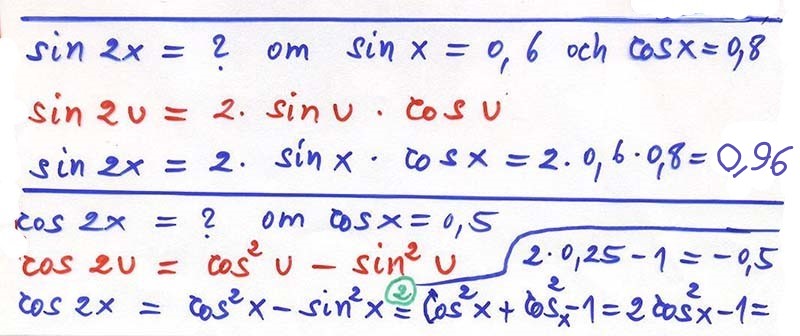 sin 2x = ? om sin x = 0,6 och cos x = 0,8
sin 2u = 2 · sin u · cos u
sin 2x = 2 · sin x · cos x = 2 · 0,6 · 0,8 = 0,96
cos 2x = ? om cos x = 0,5
cos 2u = cos² u − sin² u
cos 2x = cos² x − sin² x ② = cos² x + cos² x − 1 = 2 cos² x − 1 =
2 · 0,25 − 1 = −0,5